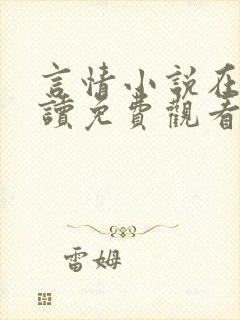 言情小說在
讀免費觀看
雷姆